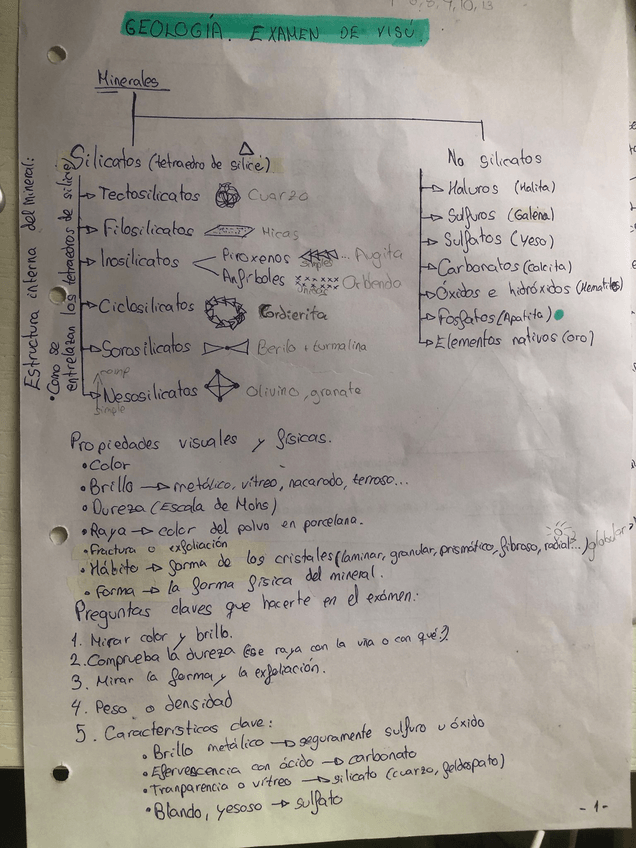 5, 7, 10, 13
GEOLOGÍA. EXAMEN DE VISÚ.
Minerales
Estructura interna del mineral:
• Como se entrelazan los tetraedros de silicie
Silicatos (tetraedro de silicie)
Tectosilicatos Cuarzo
Filosilicatos Micas
Inosilicatos Piroxenos simples Augita
Anfiboles unidos Orblendo
Ciclosilicatos Cordierita
Sorosilicatos Berilo + turmalina
Nesosilicatos Olivino, granate
comp
simple
No Silicatos
Haluros (Halita)
Sulfuros (Galena)
Sulfatos (yeso)
Carbonatos (calcita)
Óxidos e hidróxidos (Hematites)
Fosfatos (Apatita)
Elementos nativos (oro)
Propiedades visuales y físicas.
• Color
• Brillo → metálico, vítreo, nacarado, terroso...
• Dureza (Escala de Mohs)
• Raya → color del polvo en porcelana.
• Fractura o exfoliación
• Hábito → forma de los cristales (laminar, granular, prismático, fibroso, radial...) globular
• Forma → la forma física del mineral.
Preguntas claves que hacerte en el exámen:
1. Mirar color y brillo.
2. Comprueba la dureza (se raya con la uña o con qué?)
3. Mirar la forma y la exfoliación.
4. Peso o densidad
5. Características clave:
• Brillo metálico → seguramente sulfuro u óxido
• Efervescencia con ácido → carbonato
• Tranparencia o vítreo → silicato (cuarzo, feldespato)
• Blando, yesoso → sulfato
- 1 -